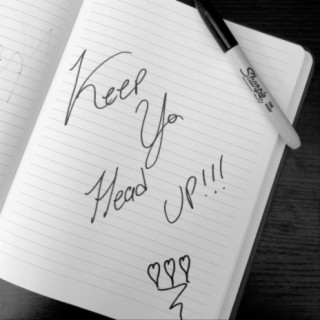 Keep
Ya
Head UP!!!
Sharpie